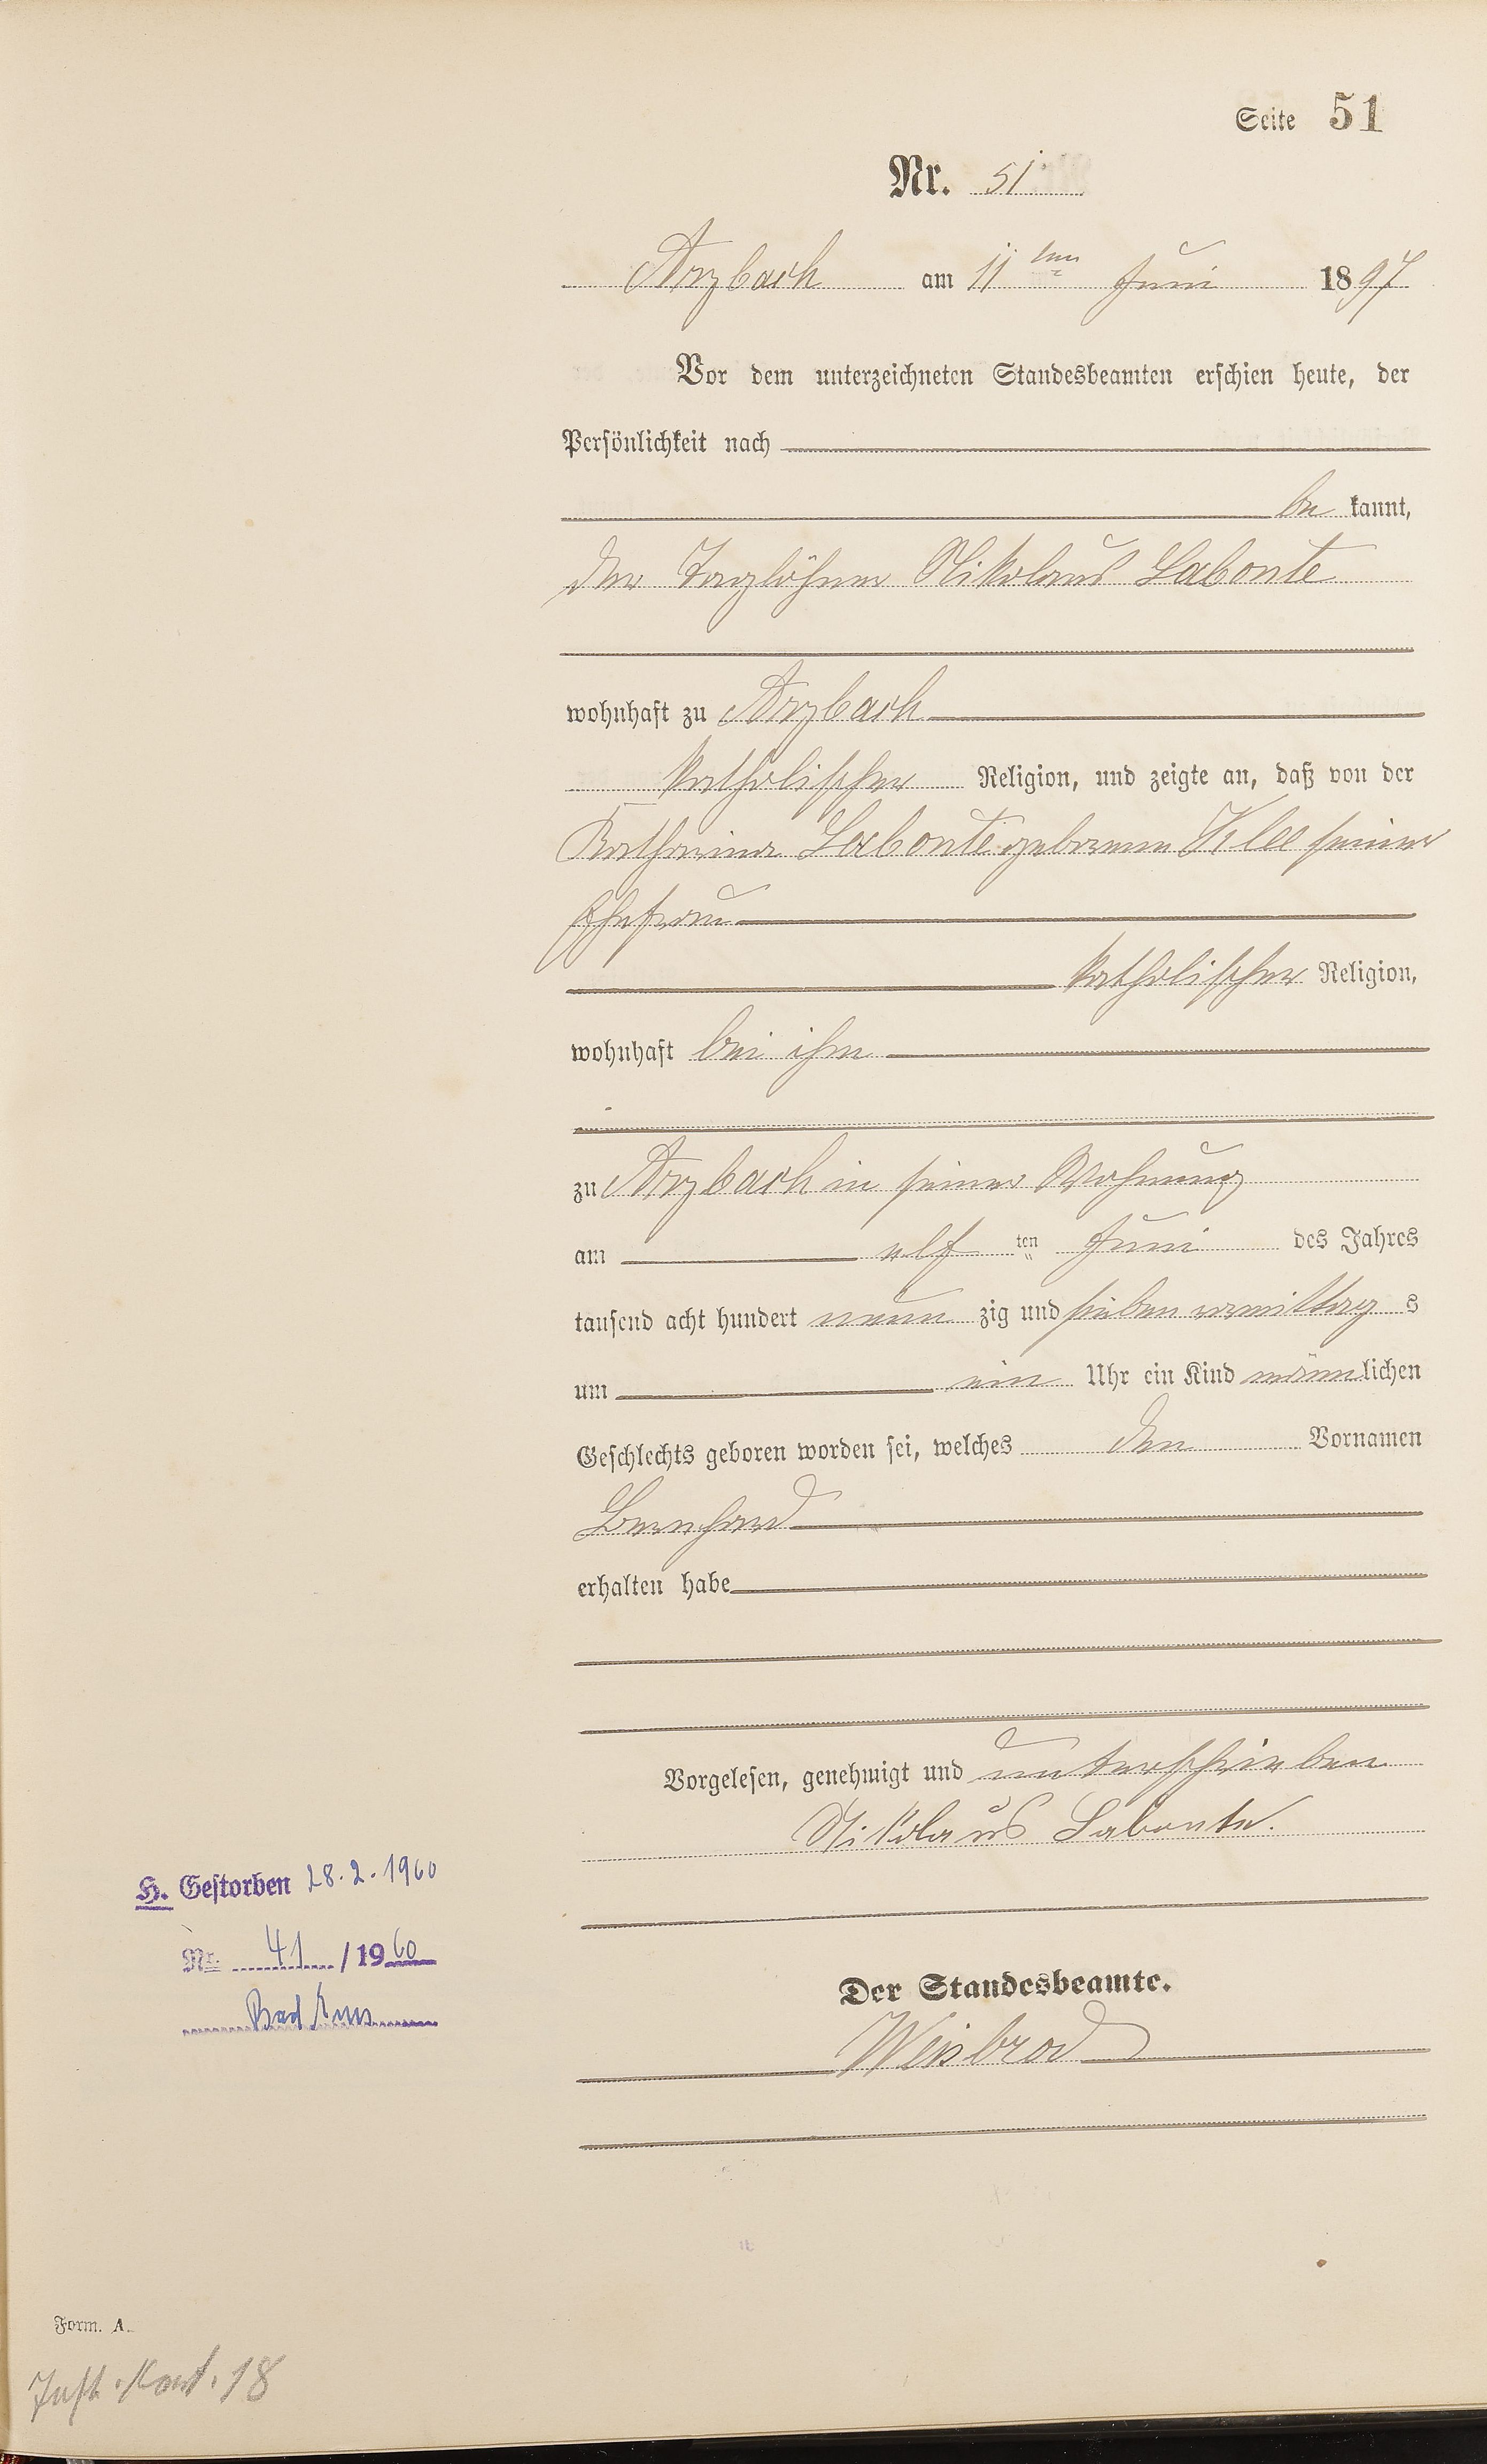 Seite 51
Nr. 51
Arzbach am 11ten Juni 1897
Vor dem unterzeichneten Standesbeamten erschien heute, der
Persönlichkeit nach
be kannt,
der Taglöhner Nikolaus Labonte
wohnhaft zu Arzbach
katholischer Religion, und zeigte an, daß von der
Katharina Labonte geborenen Klee seiner
Ehefrau
katholischer Religion,
wohnhaft bei ihm
zu Arzbach in seiner Wohnung
am elf ten Juni des Jahres
tausend acht hundert neun zig und sieben vormittag s
um ein Uhr ein Kind männlichen
Geschlechts geboren worden sei, welches den Vornamen
Bernhard
erhalten habe
Vorgelesen, genehmigt und unterschrieben
Nikolaus Labonte.
H. Gestorben 28.2.1960
Nr. 41 / 1960
Bad Ems
Der Standesbeamte.
Weisbrod
Form. A.
18